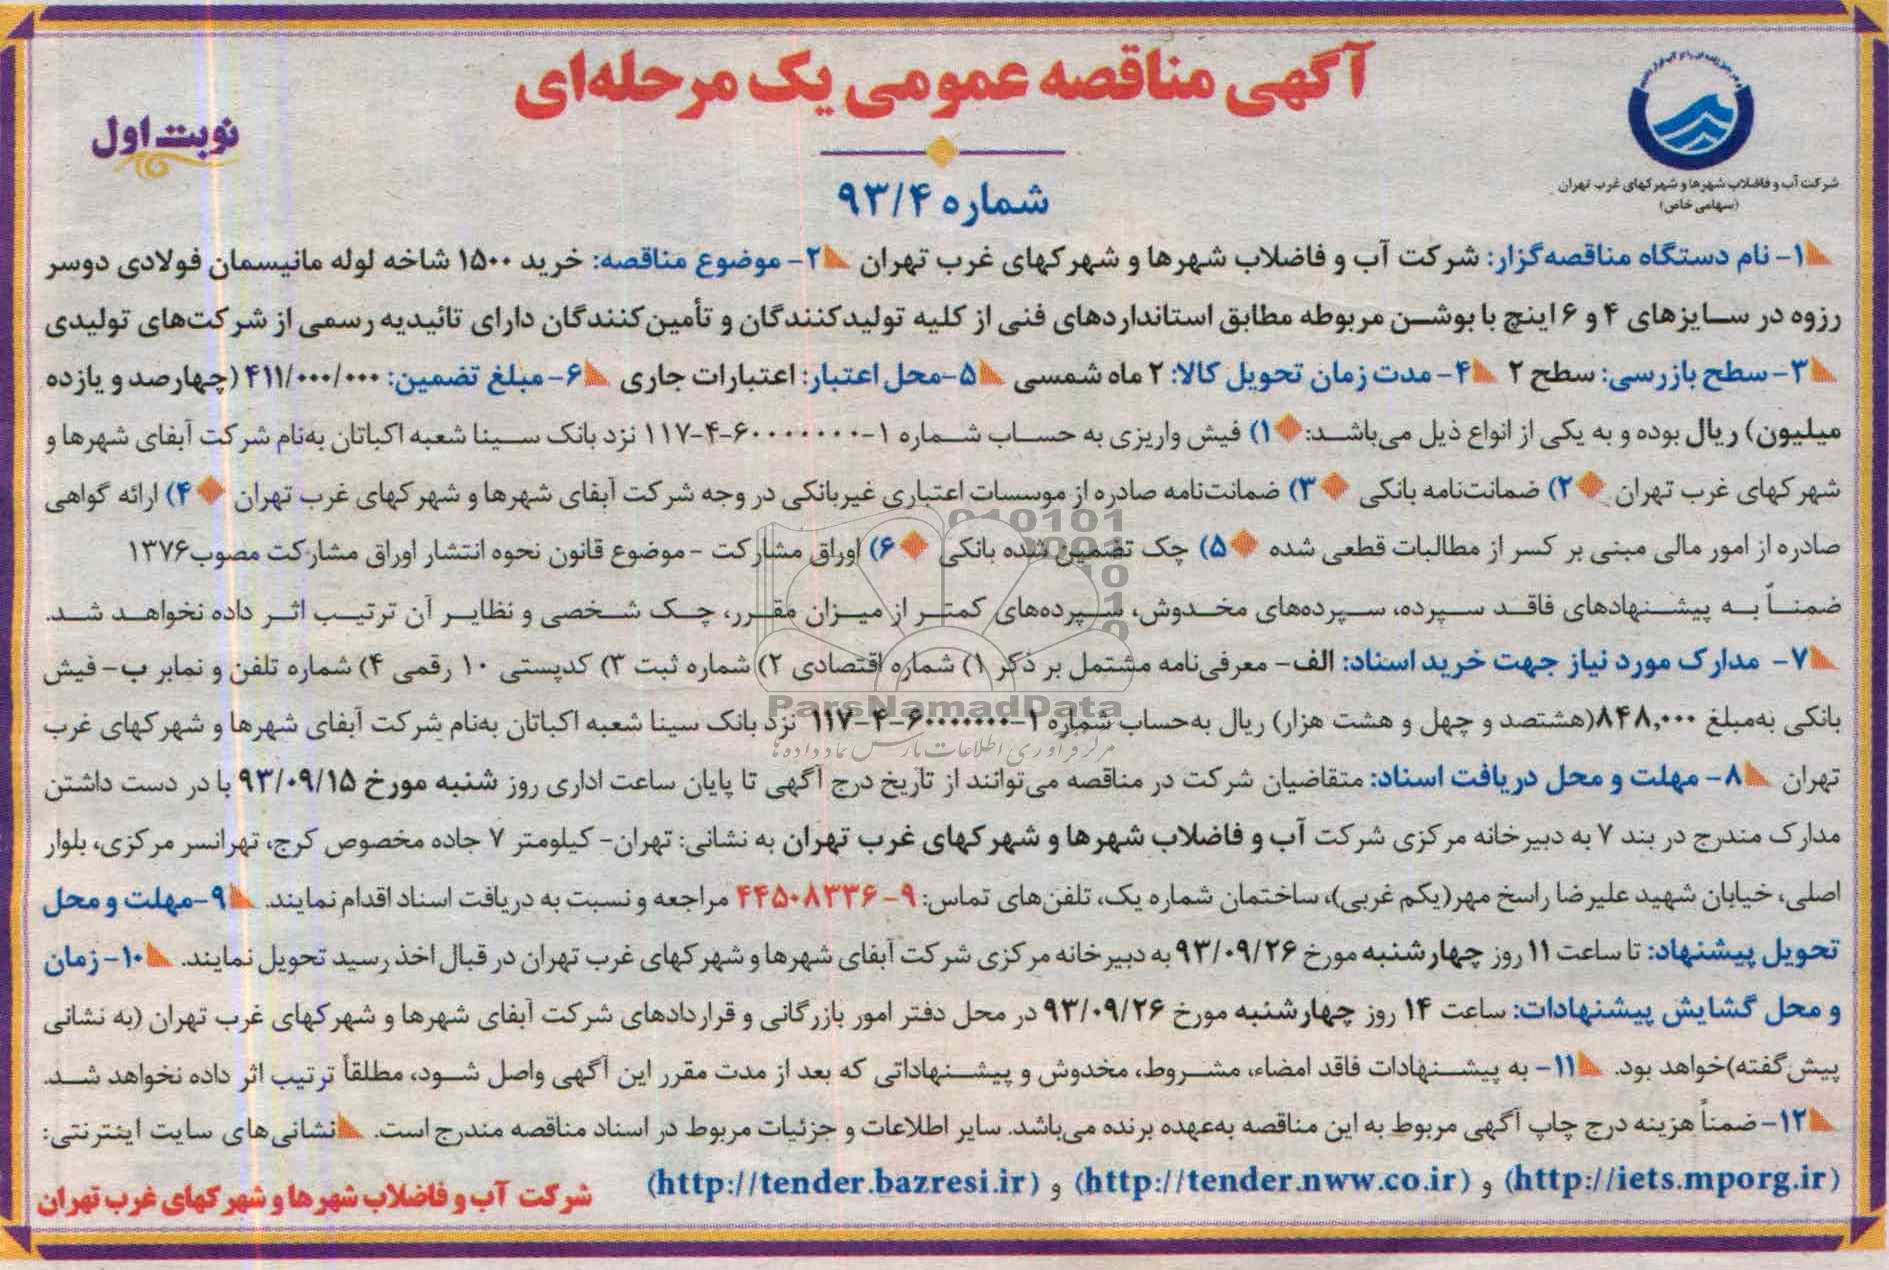 آگهی مناقصه عمومی یک مرحله‌ای
نوبت اول
شماره ۹۳/۴
شرکت آب و فاضلاب شهرها و شهرکهای غرب تهران
(سهامی خاص)
۱- نام دستگاه مناقصه‌گزار: شرکت آب و فاضلاب شهرها و شهرکهای غرب تهران ۲- موضوع مناقصه: خرید ۱۵۰۰ شاخه لوله مانیسمان فولادی دوسر
رزوه در سایزهای ۴ و ۶ اینچ با بوشن مربوطه مطابق استانداردهای فنی از کلیه تولیدکنندگان و تأمین‌کنندگان دارای تائیدیه رسمی از شرکت‌های تولیدی
۳- سطح بازرسی: سطح ۲ ۴- مدت زمان تحویل کالا: ۲ ماه شمسی ۵-محل اعتبار: اعتبارات جاری ۶- مبلغ تضمین: ۴۱۱/۰۰۰/۰۰۰ (چهارصد و یازده
میلیون) ریال بوده و به یکی از انواع ذیل می‌باشد: ۱) فیش واریزی به حساب شماره ۱-۶۰۰۰۰۰۰۰-۴-۱۱۷ نزد بانک سینا شعبه اکباتان به‌نام شرکت آبفای شهرها و
شهرکهای غرب تهران ۲) ضمانت‌نامه بانکی ۳) ضمانت‌نامه صادره از موسسات اعتباری غیربانکی در وجه شرکت آبفای شهرها و شهرکهای غرب تهران ۴) ارائه گواهی
صادره از امور مالی مبنی بر کسر از مطالبات قطعی شده ۵) چک تضمین شده بانکی ۶) اوراق مشارکت - موضوع قانون نحوه انتشار اوراق مشارکت مصوب ۱۳۷۶
ضمناً به پیشنهادهای فاقد سپرده، سپرده‌های مخدوش، سپرده‌های کمتر از میزان مقرر، چک شخصی و نظایر آن ترتیب اثر داده نخواهد شد.
۷- مدارک مورد نیاز جهت خرید اسناد: الف- معرفی‌نامه مشتمل بر ذکر ۱) شماره اقتصادی ۲) شماره ثبت ۳) کدپستی ۱۰ رقمی ۴) شماره تلفن و نمابر ب- فیش
بانکی به‌مبلغ ۸۴۸,۰۰۰ (هشتصد و چهل و هشت هزار) ریال به‌حساب شماره ۱-۶۰۰۰۰۰۰۰-۴-۱۱۷ نزد بانک سینا شعبه اکباتان به‌نام شرکت آبفای شهرها و شهرکهای غرب
تهران ۸- مهلت و محل دریافت اسناد: متقاضیان شرکت در مناقصه می‌توانند از تاریخ درج آگهی تا پایان ساعت اداری روز شنبه مورخ ۹۳/۰۹/۱۵ با در دست داشتن
مدارک مندرج در بند ۷ به دبیرخانه مرکزی شرکت آب و فاضلاب شهرها و شهرکهای غرب تهران به نشانی: تهران- کیلومتر ۷ جاده مخصوص کرج، تهرانسر مرکزی، بلوار
اصلی، خیابان شهید علیرضا راسخ مهر(یکم غربی)، ساختمان شماره یک، تلفن‌های تماس: ۹-۴۴۵۰۸۳۳۶ مراجعه و نسبت به دریافت اسناد اقدام نمایند. ۹-مهلت و محل
تحویل پیشنهاد: تا ساعت ۱۱ روز چهارشنبه مورخ ۹۳/۰۹/۲۶ به دبیرخانه مرکزی شرکت آبفای شهرها و شهرکهای غرب تهران در قبال اخذ رسید تحویل نمایند. ۱۰- زمان
و محل گشایش پیشنهادات: ساعت ۱۴ روز چهارشنبه مورخ ۹۳/۰۹/۲۶ در محل دفتر امور بازرگانی و قراردادهای شرکت آبفای شهرها و شهرکهای غرب تهران (به نشانی
پیش گفته) خواهد بود. ۱۱- به پیشنهادات فاقد امضاء، مشروط، مخدوش و پیشنهاداتی که بعد از مدت مقرر این آگهی واصل شود، مطلقاً ترتیب اثر داده نخواهد شد.
۱۲- ضمناً هزینه درج چاپ آگهی مربوط به این مناقصه به‌عهده برنده می‌باشد. سایر اطلاعات و جزئیات مربوط در اسناد مناقصه مندرج است. نشانی‌های سایت اینترنتی:
(http://iets.mporg.ir) و (http://tender.nww.co.ir) و (http://tender.bazresi.ir)
شرکت آب و فاضلاب شهرها و شهرکهای غرب تهران
ParsNamadData
مرکز فرآوری اطلاعات پارس نماد داده‌ها